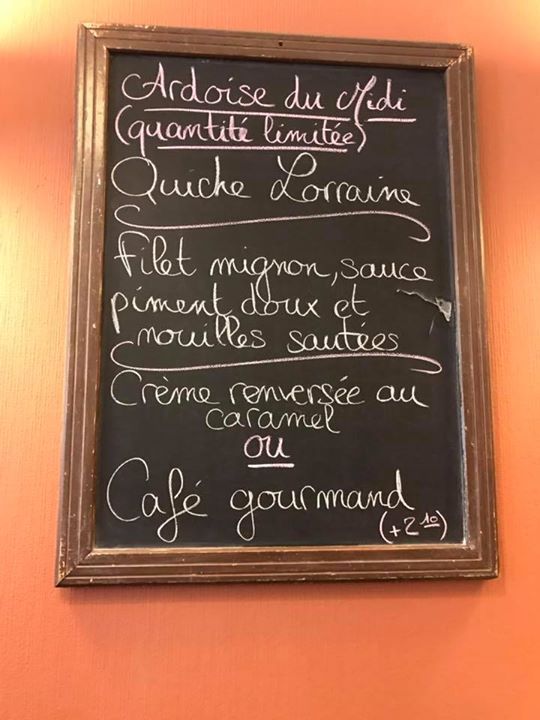 Ardoise du Midi
(quantité limitée)
Quiche Lorraine
Filet mignon, sauce
piment doux et
nouilles sautées
Crème renversée au
caramel
ou
Café gourmand
(+2 10)